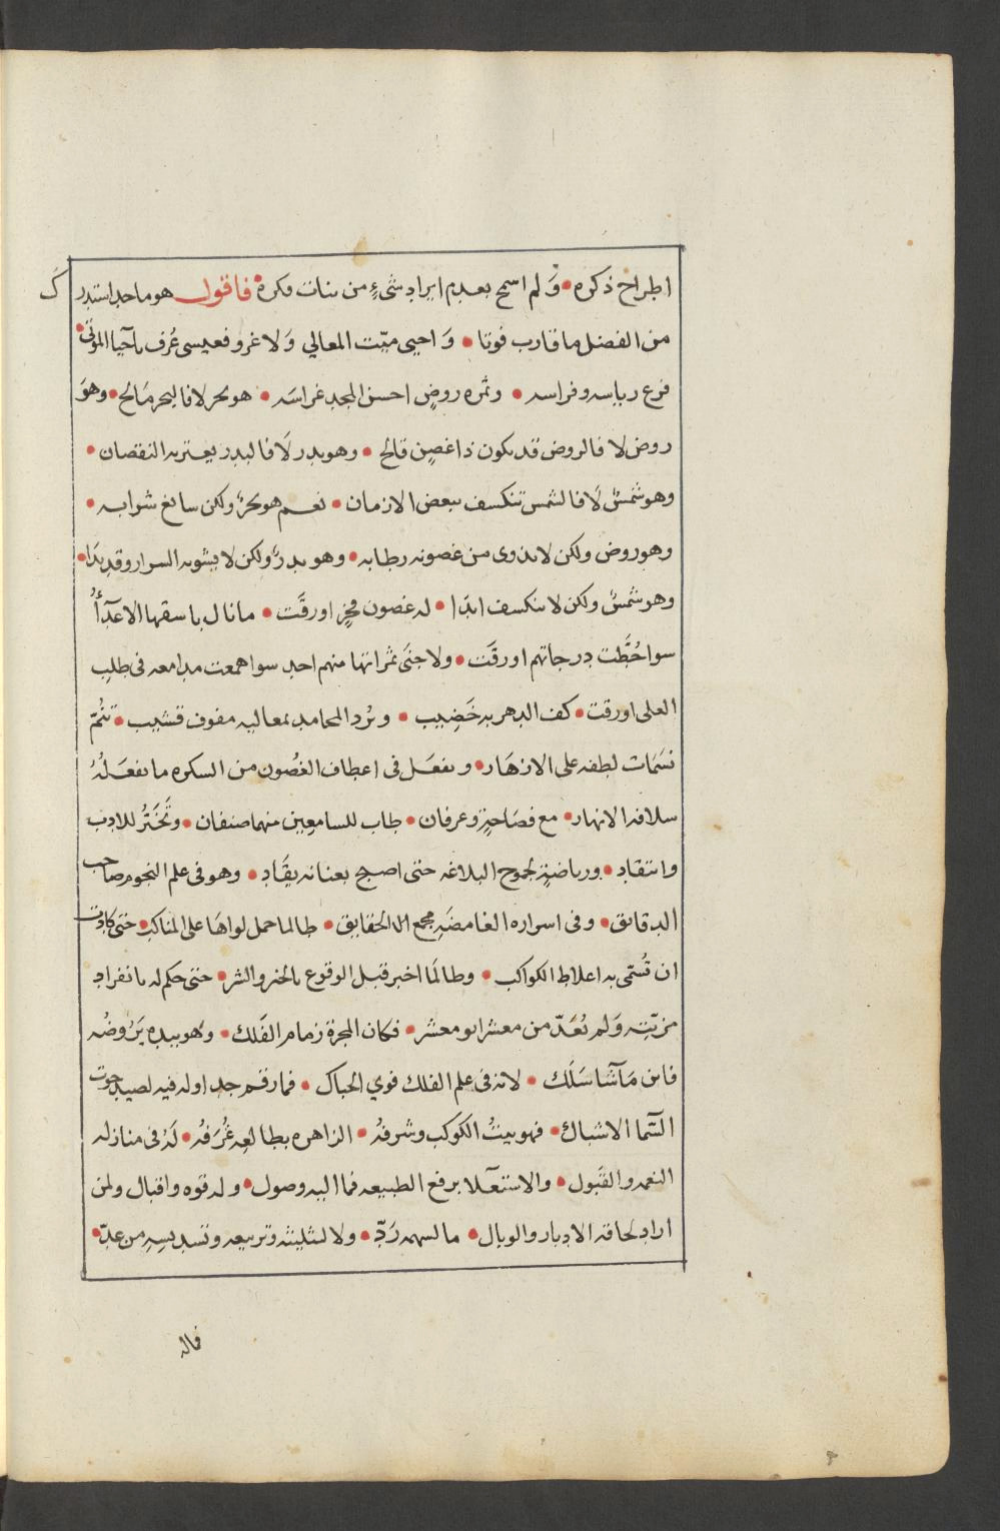 اطراح ذكره • وَلم اسمح بعدم ايراد شَيءٍ من بنات فكره • فاقول هو ماجد استدرك
من الفضل ما قارب فوتا • وَ احيى ميّت المعالي وَلا غرو فعيسى عُرف باَحيا الموتى •
فرع رياسه وفراسه • وثمره روضٍ احسن المجد غراسَه • هو بحر لا فالبحر مَالح • وهوَ
روض لا فالروض قد يكون ذا غصِن قالح • وهو بدر لَا فالبدر يعتريه النقصان •
وهو شمسٌ لَا فالشمس تنكسف ببعض الازمان • نعم هو بحرٌ ولكن سايغ شرابه •
وهو روض ولكن لا يذوى من غصونه رطابه • وهو بدرٌ ولكن لا يشوبه السرار وقد بدَا •
وهو شمسٌ ولكن لا تنكسف ابدًا • له غصون فخرٍ اورقَت • ما نال باسقها الاعدآءُ
سوا حُطَّت درجاتهم اورقَت • ولا جنَى ثمراتها منهم احد سوا همعت مدامعه فى طلِب
العلى اورقت • كف الدهر به خَضِيب • وبُرد المحامد بمعاليه مفوف قشيب • تنُمّ
نسَمَات لطفه على الازهَار • ويفعَل فى اعطاف الغصُون من السكره ما يفعَلهُ
سلافه الانهار • مع فصَاحةٍ وعرفان • طاب للسامعِين منهما صنفان • وتَخَتُّر للادب
وانتقاد • ورياضةٍ لجموح البلاغه حتى اصبح بعنانه يقَاد • وهو فى علم النجوم صاحب
الدقائق • وفى اسراره الغامضَهِ مجمع الحقايق • طالما حمل لواهَا على المناكب • حتى كادت
ان تُنمّى به اغلاط الكواكب • وطالَما اخبر قبل الوقوع بالخير والشر • حتى حكم له بانفراد
مزيّته وَلم نُعَدّ من معشر ابو معشر • فكان المجرة زمام الفَلك • وَهو بيده يَرُوضُه
فاين مَا شآ سَلَك • لانه فى علم الفلك قوي الحباك • فما رقم جداوله فيه لصيد حوت
السَّما الا شباك • فهو بيتُ الكوكب وشرفهُ • الزاهره بطالعِه غُرَفُه • لَهُ فى منازله
النعمه والقَبول • والاستعَلا برفع الطبيعه فما اليه وصول • وله قوه واقبال ولمن
اراد لحاقه الادبار والوبال • ما لسهمه رَدّ • ولا لتثليثه وتربيعه وتسديسِهِ من عدّ •
فاله